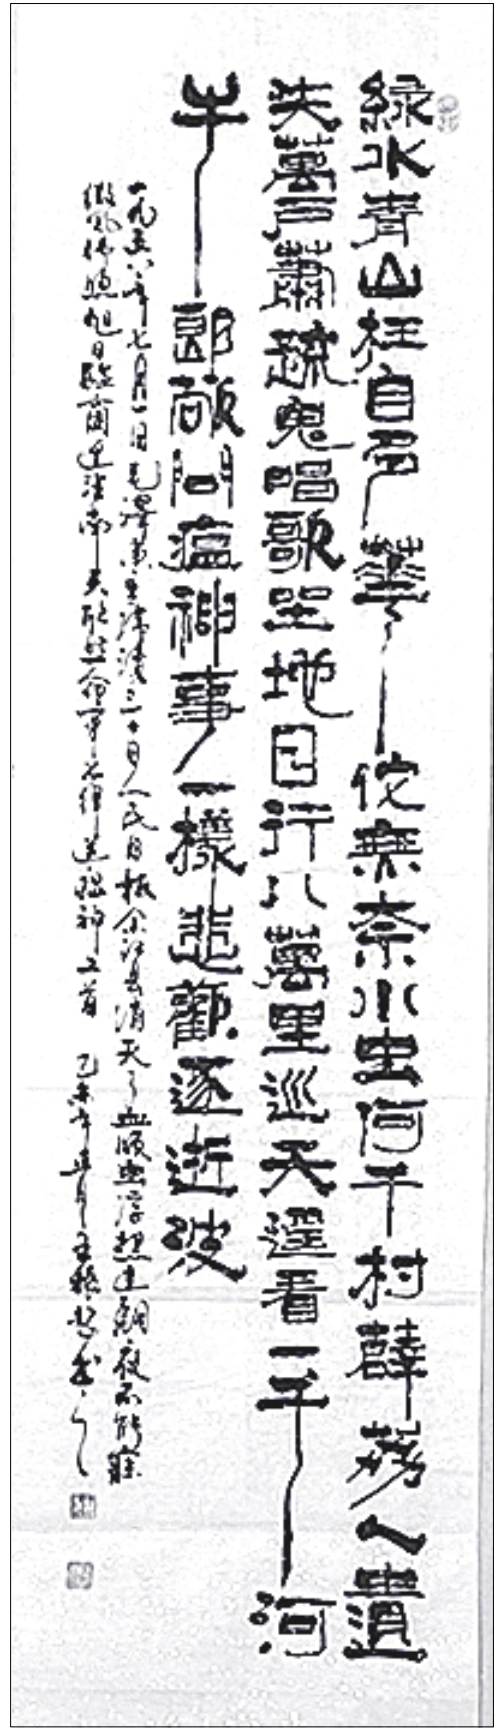 綠水青山枉自多華佗無奈小虫何千村薜荔人遺
失萬戶蕭疏鬼唱歌坐地日行八萬里巡天遥看一千河
牛郎欲問瘟神事一樣悲歡逐逝波
一九五八年七月一日毛澤東主席讀三十日人民日報余江縣消灭了血吸虫浮想連翩夜不能寐
微風拂煦旭日臨窗遥望南天欣然命筆七律送瘟神二首 乙未年 月王 書